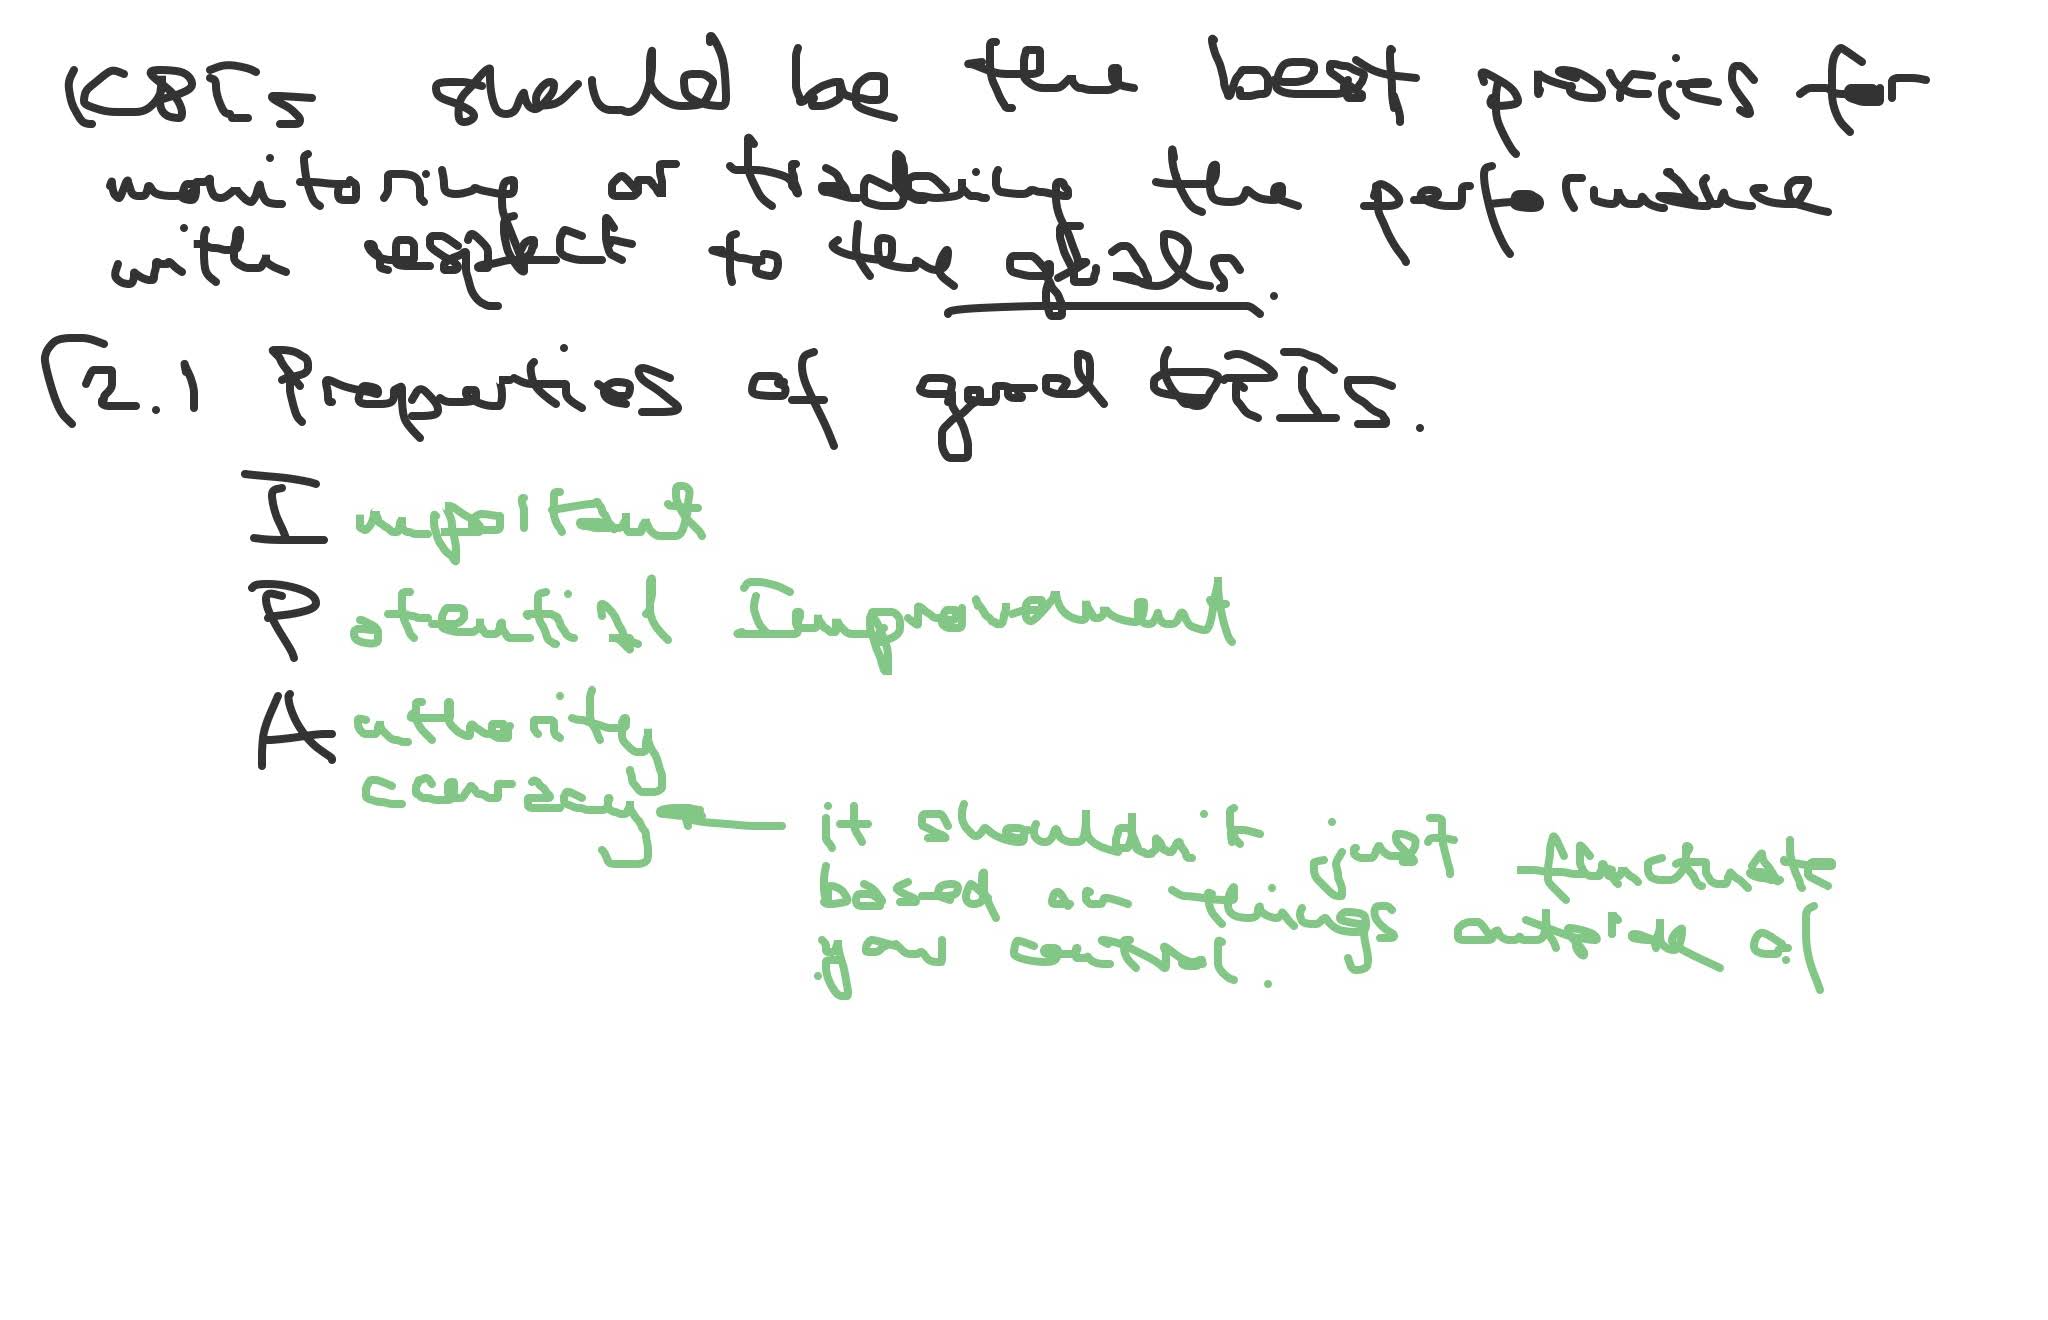 should be the best proxies for
monitoring or tracking the performance
with respect to the goals.
2.1 Properties of good
Important
Potential Improvement
Authority
ccuracy — it shouldn't just
based on things outside of
your control.